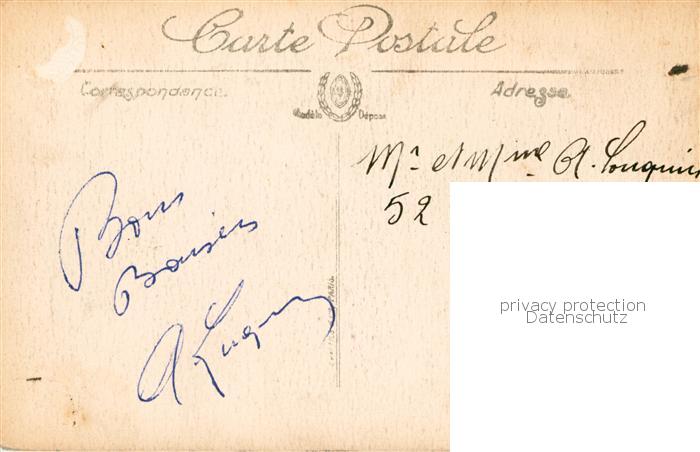 Carte Postale
Correspondance
Adresse
Modèle Déposé
Mr et Mme A.
52
Bons
Baisers
A
privacy protection
Datenschutz